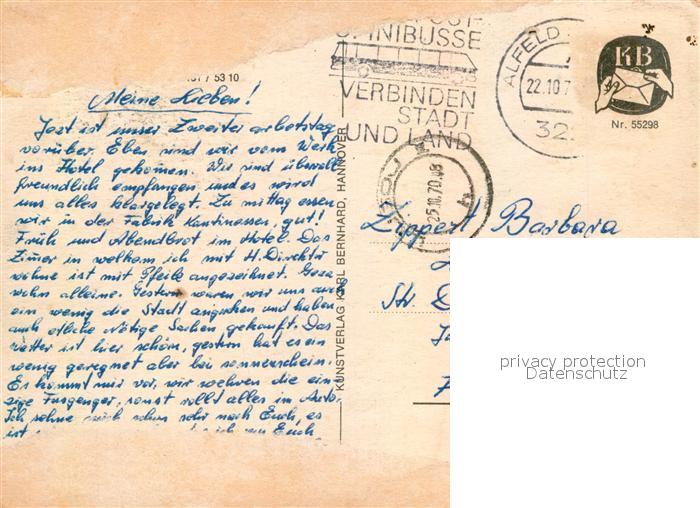 OMNIBUSSE
VERBINDEN
STADT
UND LAND
ALFELD
22.10.7
32
KB
Nr. 55298
53 10
25.10.70.08
KUNSTVERLAG KARL BERNHARD, HANNOVER
Meine Lieben!
Jezt ist unser Zweiter arbetstag
vorüber. Eben sind wir vom Werk
ins Hotel gekomen. Wir sind überall
freundlich empfangen und es wird
uns alles klargelegt. Zu mittag essen
wir in der Fabrik Kantinessen, gut!
Früh und Abendbrot im Hotel. Das
Zimer in welkom ich mit H. Direktr
wohne ist mit Pfeile angezeichnet. Geza
wohn alleine. Gestern waren wir uns auch
ein wenig die Stadt angucken und haben
auch etliche Nötige Sachen gekauft. Das
Wetter ist hier schön, gestern hat es ein
wenig geregnet aber bei sonnerschein.
Es kommt mir vor, wir wehren die ein-
zige Fusgenger, sonst rollt alles im Auto.
Ich sehne mich schon sehr nach Euch, es
ist
Euch
Zippert Barbara
Str
privacy protection
Datenschutz